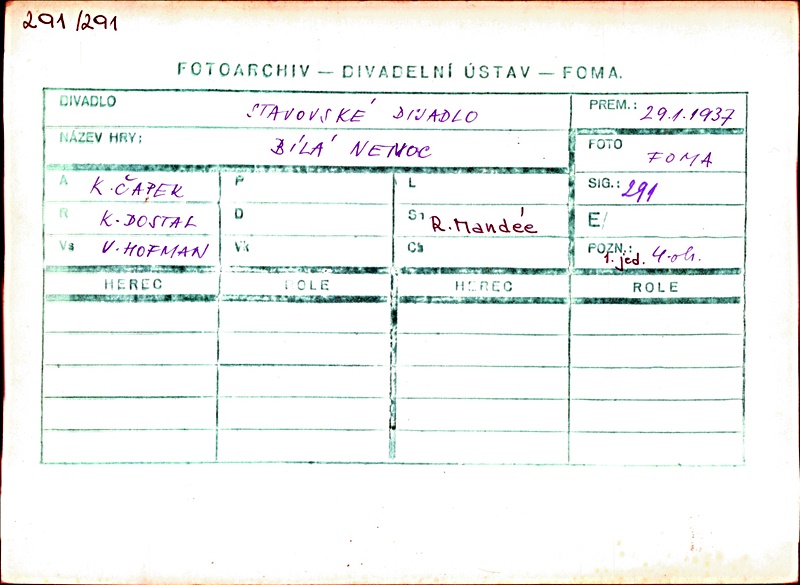 291/291
FOTOARCHIV — DIVADELNÍ ÚSTAV — FOMA.
DIVADLO STAVOVSKÉ DIVADLO PREM.: 29.1.1937
NÁZEV HRY: BÍLÁ NEMOC FOTO FOMA
A K. ČAPEK P L SIG.: 291
R K. DOSTAL D S1 R. Mandée E/
Vs V. HOFMAN Vk Ch POZN.: 1. jed. 4. ob.
HEREC ROLE HEREC ROLE